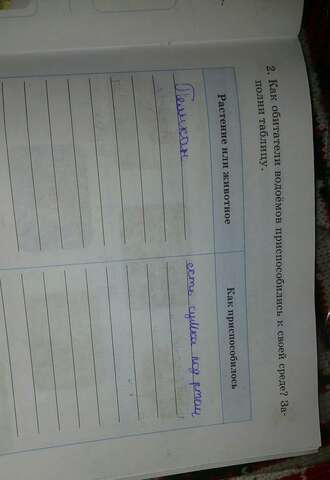 2. Как обитатели водоёмов приспособились к своей среде? За-
полни таблицу.
Растение или животное
Как приспособилось
Пеликан
есть сумка под ртом